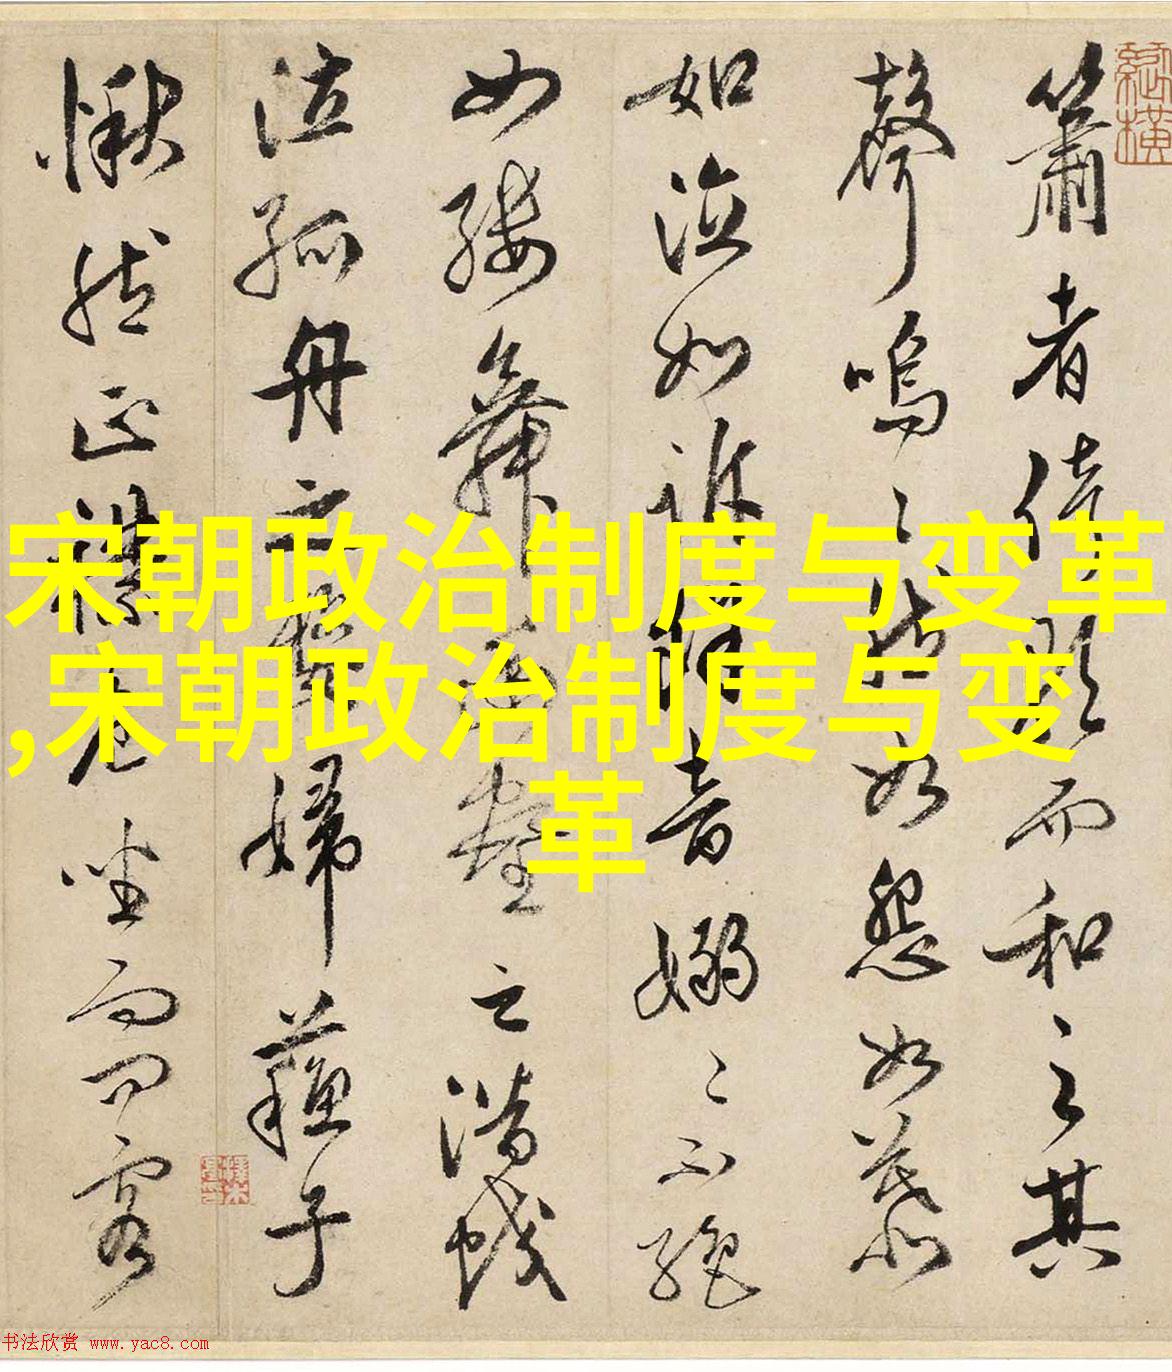 簫者倚歌而和之其
聲嗚〻然如怨如慕
如泣如訴餘音嫋〻不絕
如縷舞幽壑之潛蛟
泣孤舟之嫠婦蘇子
愀然正襟危坐而問客
宋朝政治制度与变革
,宋朝政治制度与变
革
书法欣赏 www.yac8.com